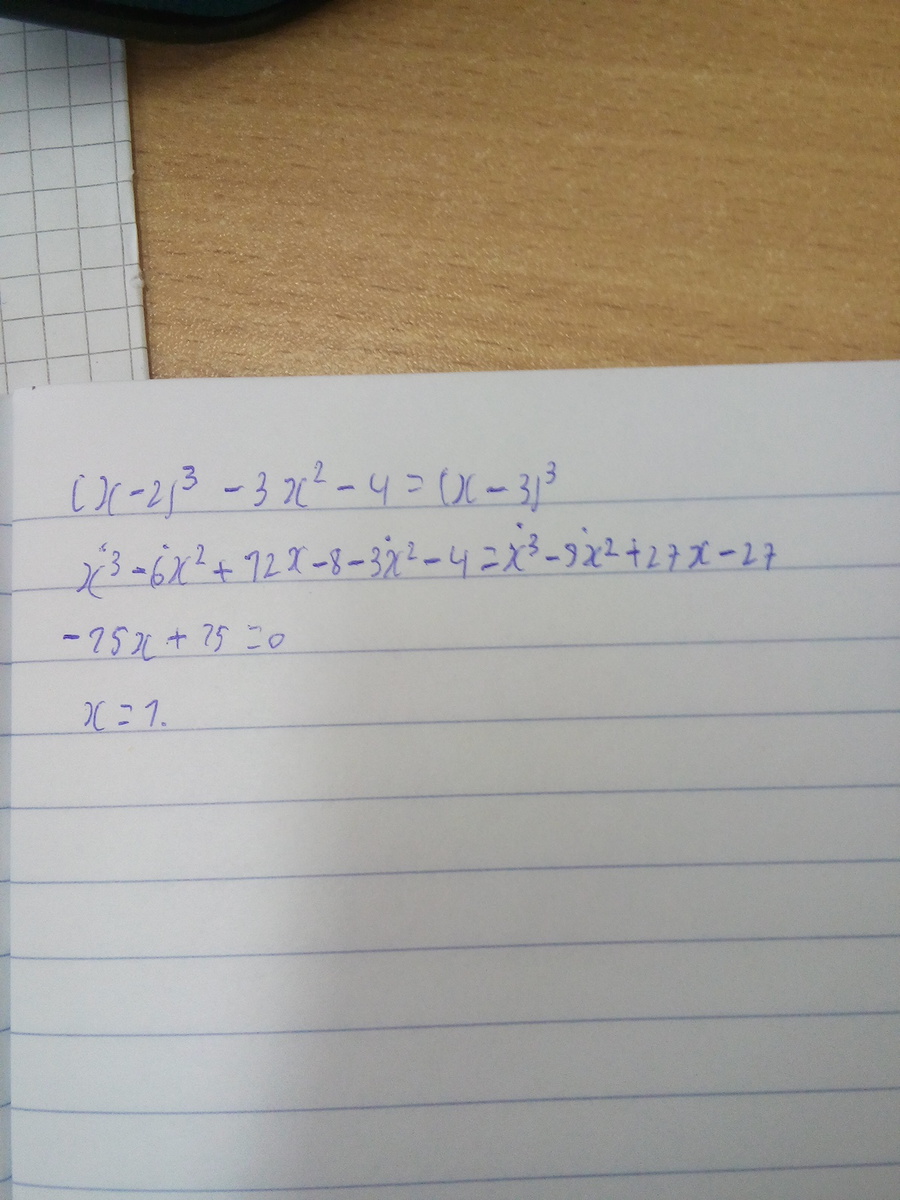 (x-2)³ - 3x² - 4 = (x-3)³
x³ - 6x² + 12x - 8 - 3x² - 4 = x³ - 9x² + 27x - 27
-15x + 15 = 0
x = 1.